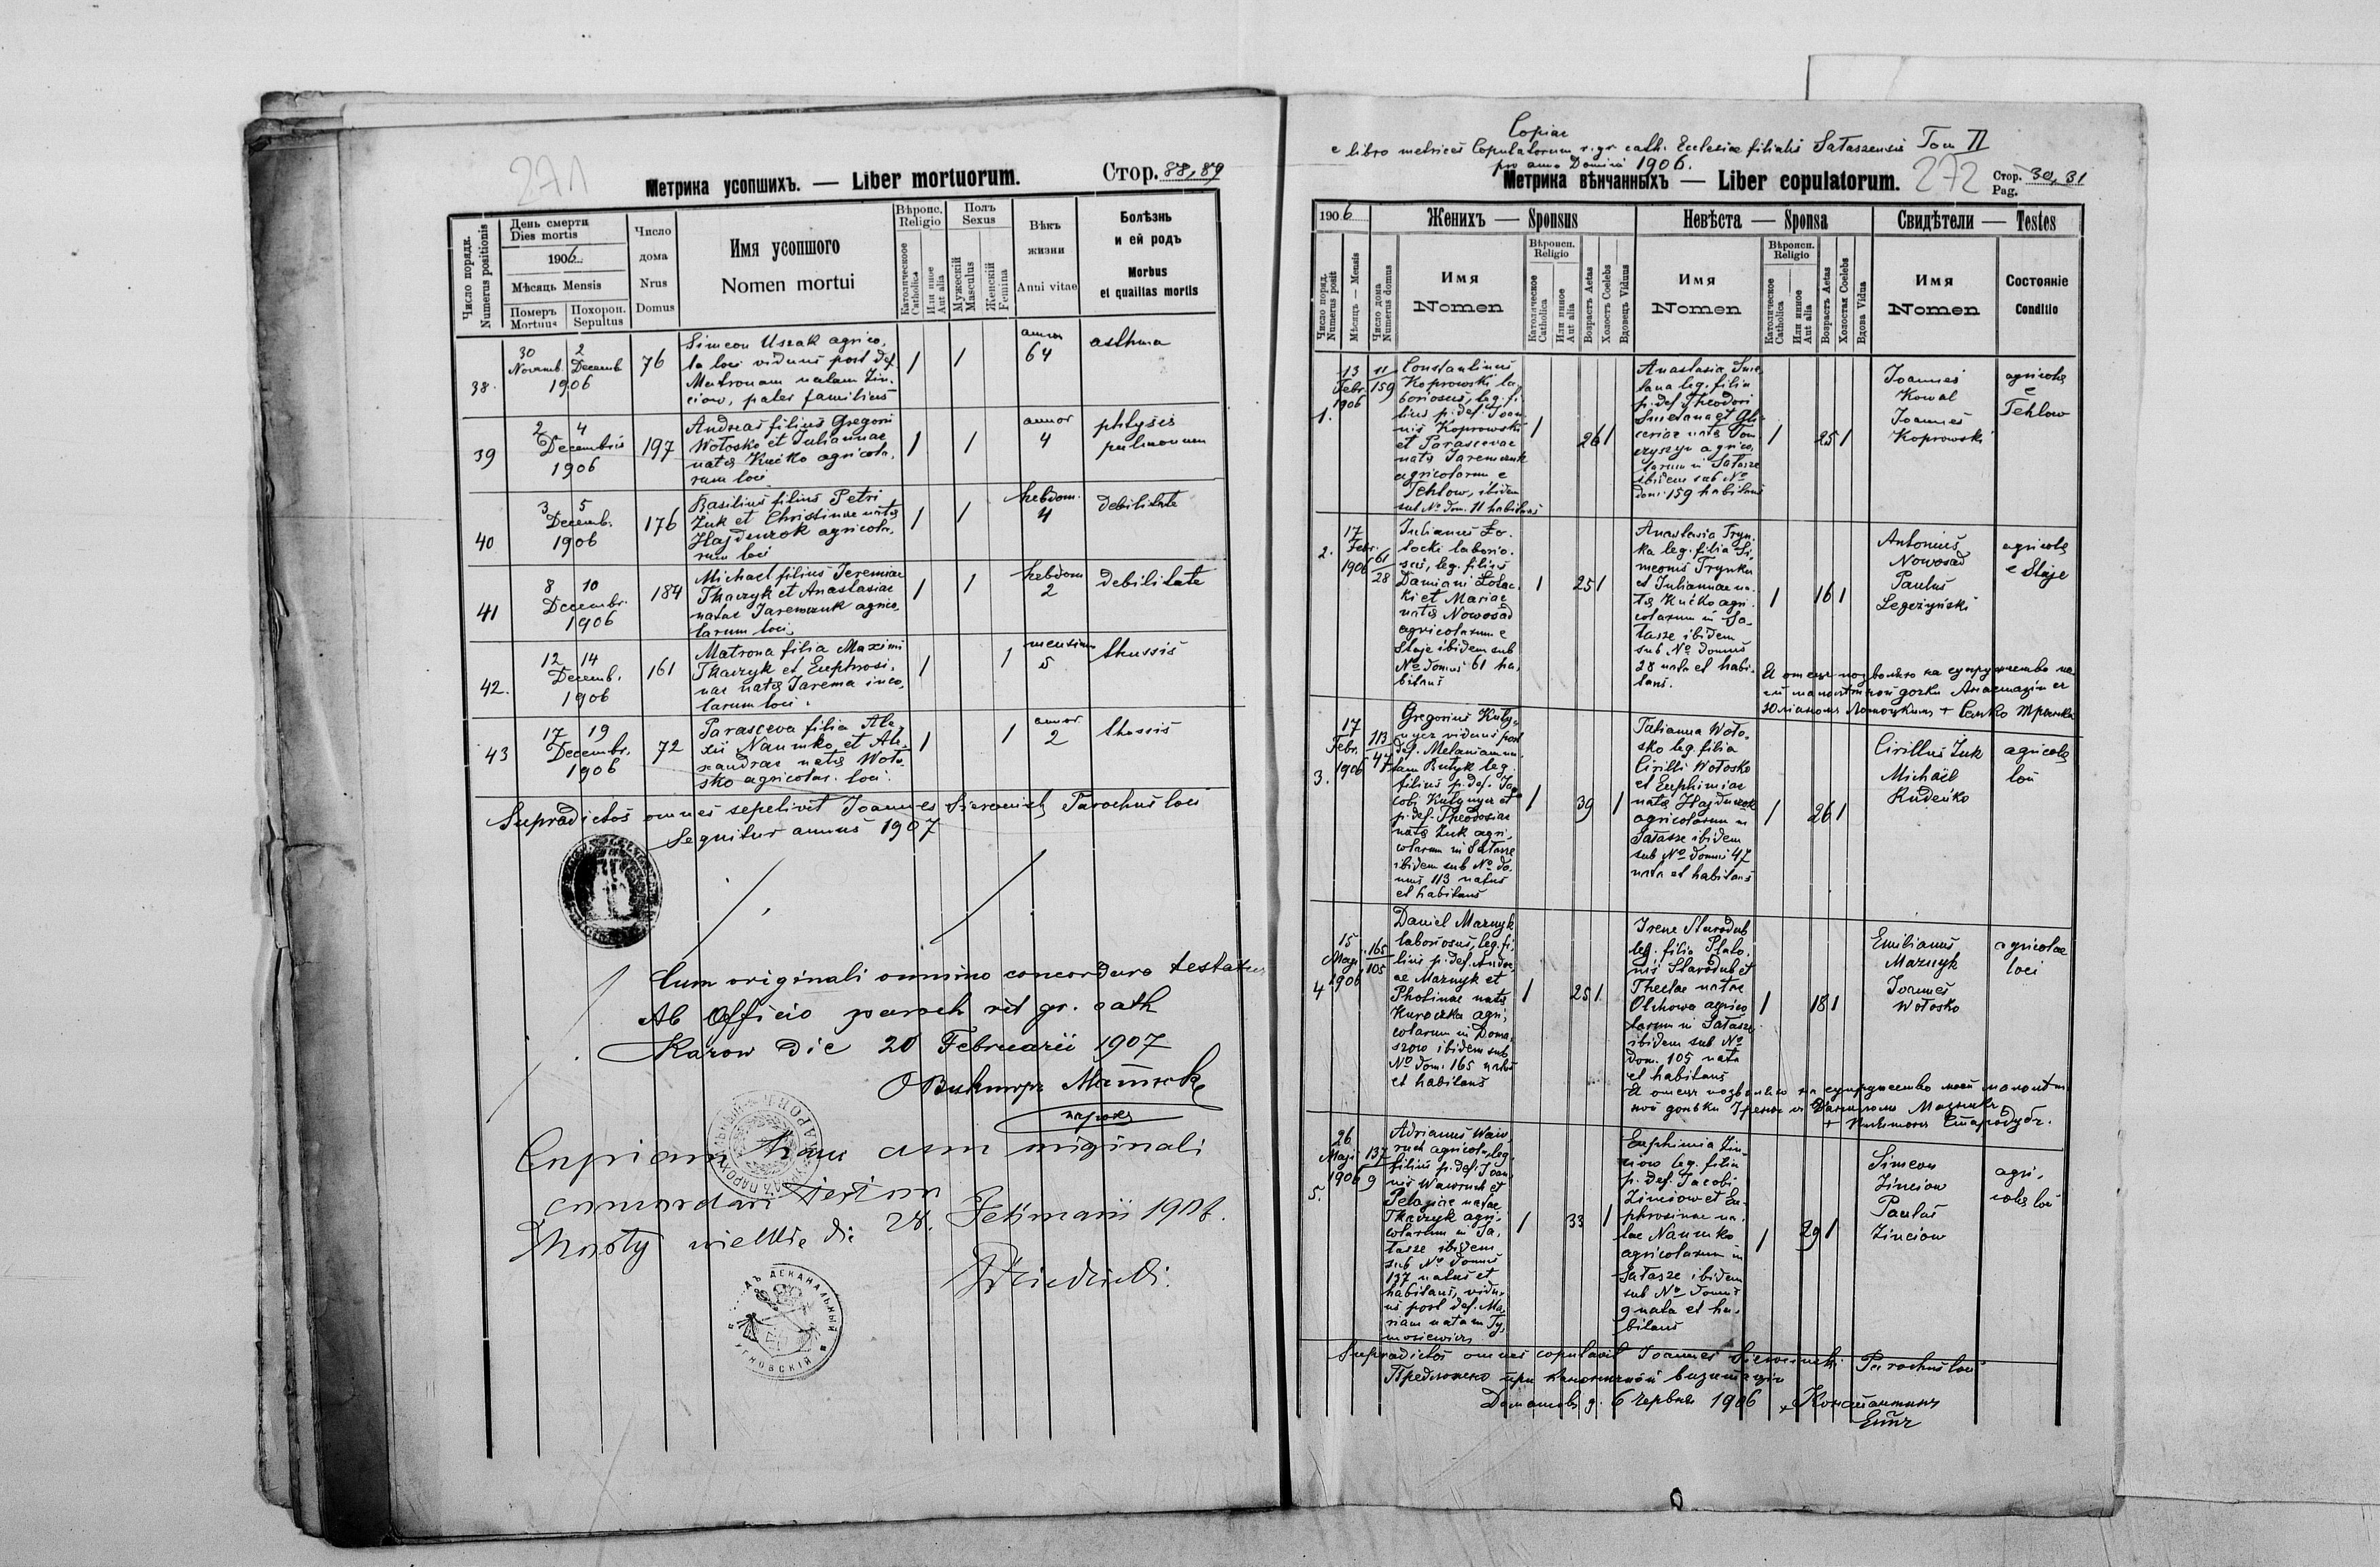 271
Метрика усопшихъ. — Liber mortuorum.
Стор. 88, 89
Число порядк.
Numerus positionis
День смерти
Dies mortis
1906
Мѣсяць Mensis
Померъ
Mortuus
Похорон.
Sepultus
Число
дома
Nrus
Domus
Имя усопшого
Nomen mortui
Вѣроис.
Religio
Католическое
Catholica
Или иное
Aut alia
Полъ
Sexus
Мужескій
Masculus
Женскій
Femina
Вѣкъ
жизни
Anni vitae
Болѣзнь
и ей родъ
Morbus
et qualitas mortis
38.
30 2
Novemb. Decemb
1906
76
Simeon Uszak agrico,
la loci viduus post def.
Matronam natam Zin,
ciow, pater familias
1 1
annor
64
asthma
39
2 4
Decembris
1906
197
Andreas filius Gregorii
Wołosko et Juliannae
natae Kućko agricola,
rum loci
1 1
annor
4
phtysis
pulmonum
40
3 5
Decemb.
1906
176
Basilius filius Petri
Żuk et Christinae natae
Hajduczok agricola,
rum loci
1 1
hebdom.
4
debilitate
41
8 10
Decembr.
1906
184
Michael filius Jeremiae
Tkaczyk et Anastasiae
natae Jaremczuk agrico,
larum loci
1 1
hebdom
2
debilitate
42.
12 14
Decemb.
1906
161
Matrona filia Maximi
Tkaczyk et Euphrosi,
nae natae Jarema inco,
larum loci.
1 1
mensium
5
thussis
43
17 19
Decembr.
1906
72
Parasceva filia Ale,
xii Naumko et Ale,
xandrae natae Woło,
sko agricolar. loci.
1 1
annor.
2
thussis
Supradictos omnes sepelivit Joannes Parochus loci
Sequitur annus 1907
Cum originali omnino concordare testatur
Ab Officio paroch rit gr. cath
Karow die 20 Februarii 1907
парох
Copiam hanc cum originali
concordare testor
Mosty wielkie die 28. Februarii 1907.
ДЕКАНАЛЬНЫЙ
УГНОВСКІЙ
Copiae
e libro metrices Copulatorum r. gr. cath. Ecclesiae filialis Sałaszensis Tom II
pro anno Domini 1906.
Метрика вѣнчанныхъ — Liber copulatorum.
272
Стор.
Pag. 30, 31
1906
Женихъ — Sponsus
Невѣста — Sponsa
Свидѣтели — Testes
Число поряд.
Numerus posit
Мѣсяць — Mensis
Число дома
Numerus domus
Имя
Nomen
Вѣроисп.
Religio
Католическое
Catholica
Или иное
Aut alia
Возрастъ Aetas
Холостъ Coelebs
Вдовецъ Viduus
Имя
Nomen
Вѣроисп.
Religio
Католическое
Catholica
Или иное
Aut alia
Возрастъ Aetas
Холостая Coelebs
Вдова Vidua
Имя
Nomen
Состоянie
Conditio
1.
13
Febr.
1906
11
159
Constantinus
Koprowski la,
boriosus, leg. fi,
lius p. def. Joan
nis Koprowski
et Parascevae
natae Jaremczuk
agricolarum e
Tehlow, ibidem
sub No dom. 11 habitans
1 26 1
Anastasia Smie,
tana leg. filia
p. def. Theodori
Smietana et Gli,
ceriae natae Tom
czyszyn agrico,
larum in Sałasze
ibidem sub No
dom. 159 habitans
1 25 1
Joannes
Kowal
Joannes
Koprowski
agricolae
e
Tehlow
2.
17
Febr.
1906
61
28
Julianus Ło,
tocki laborio,
sus, leg. filius
Damiani Łotoc,
ki et Mariae
natae Nowosad
agricolarum e
Staje ibidem sub
No domus 61 ha,
bitans
1 25 1
Anastasia Tryn,
ka leg. filia Si,
meonis Trynka
et Juliannae na,
tae Kućko agri,
colarum in Sa,
łasze ibidem
sub No domus
28 nata et habi,
tans.
1 16 1
Antonius
Nowosad
Paulus
Legeżyński
agricolae
e Staje
Я отецъ позволяю на супружество мо
ей малолѣтной дочки Анастазіи съ
Юліаномъ Лотоцкимъ + Сенько Тринка
3.
17
Febr.
1906
113
47
Gregorius Kuty,
nycz viduus post
def. Melaniam na,
tam Butyk leg.
filius p. def. Ja,
cobi Kutynycz et
p. def. Theodosiae
natae Żuk agri,
colarum in Sałasze
ibidem sub No do,
mus 113 natus
et habitans
1 39 1
Tatianna Woło,
sko leg. filia
Cirilli Wołosko
et Euphimiae
natae Hajduczok
agricolarum in
Sałasze ibidem
sub No domus 47
nata et habitans
1 26 1
Cirillus Żuk
Michael
Rudeńko
agricolae
loci
4
15
Maji
1906
165
105
Daniel Maznyk
laboriosus, leg. fi,
lius p. def. Andre,
ae Maznyk et
Photinae natae
Kuroczka agri,
colarum in Doma,
szow ibidem sub
No dom. 165 natus
et habitans
1 25 1
Irene Starodub
leg. filia Plato,
nis Starodub et
Theclae natae
Olchowa agrico
larum in Sałasze
ibidem sub No
dom. 105 nata
et habitans
1 18 1
Emilianus
Maznyk
Joannes
Wołosko
agricolae
loci
Я отецъ позваляю на супружество моей малолѣт
ной доньки Ірены съ Даниломъ Мазникъ
+ Платонъ Стародубъ.
5.
26
Maji
1906
137
9
Adrianus Waw
ruch agricola, leg.
filius p. def. Joan
nis Wawruch et
Pelagiae natae
Tkaczyk agri,
colarum in Sa,
łasze ibidem
sub No domus
137 natus et
habitans, vidu,
us post def. Ma,
riam natam Ty,
mosiewicz
1 33 1
Euphimia Zin,
ciow leg. filia
p. def. Jacobi
Zinciow et Eu,
phrosinae na,
tae Naumko
agricolarum in
Sałasze ibidem
sub No domus
9 nata et ha,
bitans
1 29 1
Simeon
Zinciow
Paulus
Zinciow
agri,
colae loci
Supradictos omnes copulavit Joannes Parochus loci
Предложено при каноничной визитаціи
Домашовъ д. 6 червня 1906 + Константинъ
Еппъ